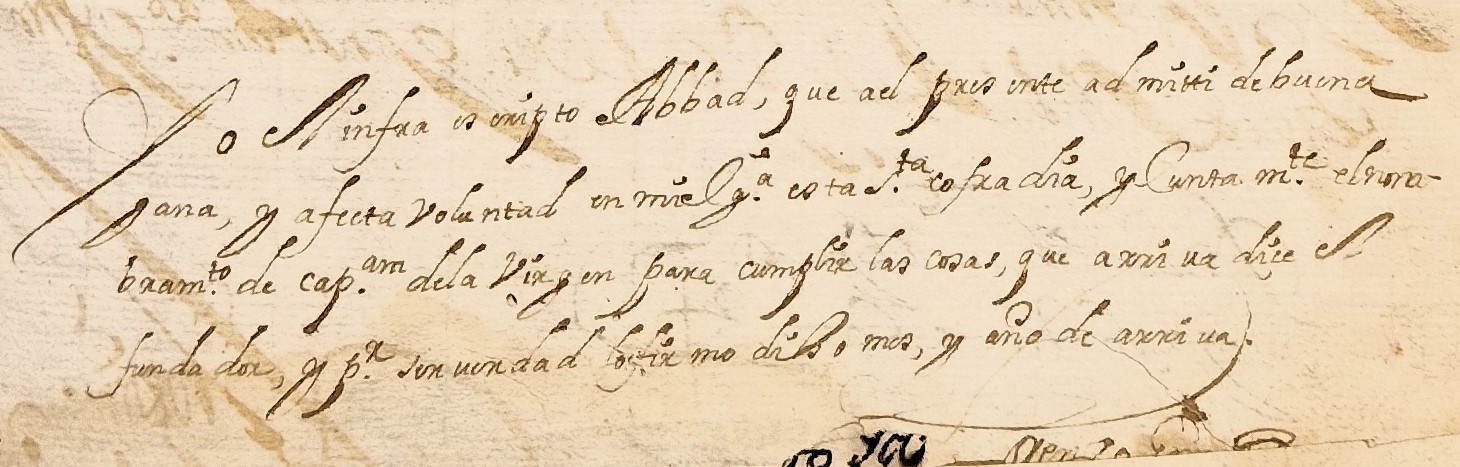 Yo el infra escripto Abbad, que ael presente admitti debuena
gana, y afecta voluntad en mi Ygª. esta S.ta cofradia, y Junta m.te elnom-
bram.to de cap.am dela Virgen para cumplir las cosas, que arriva dice el
fundador, y p.r ser verdad lo firmo dicho mes, y año de arriva.